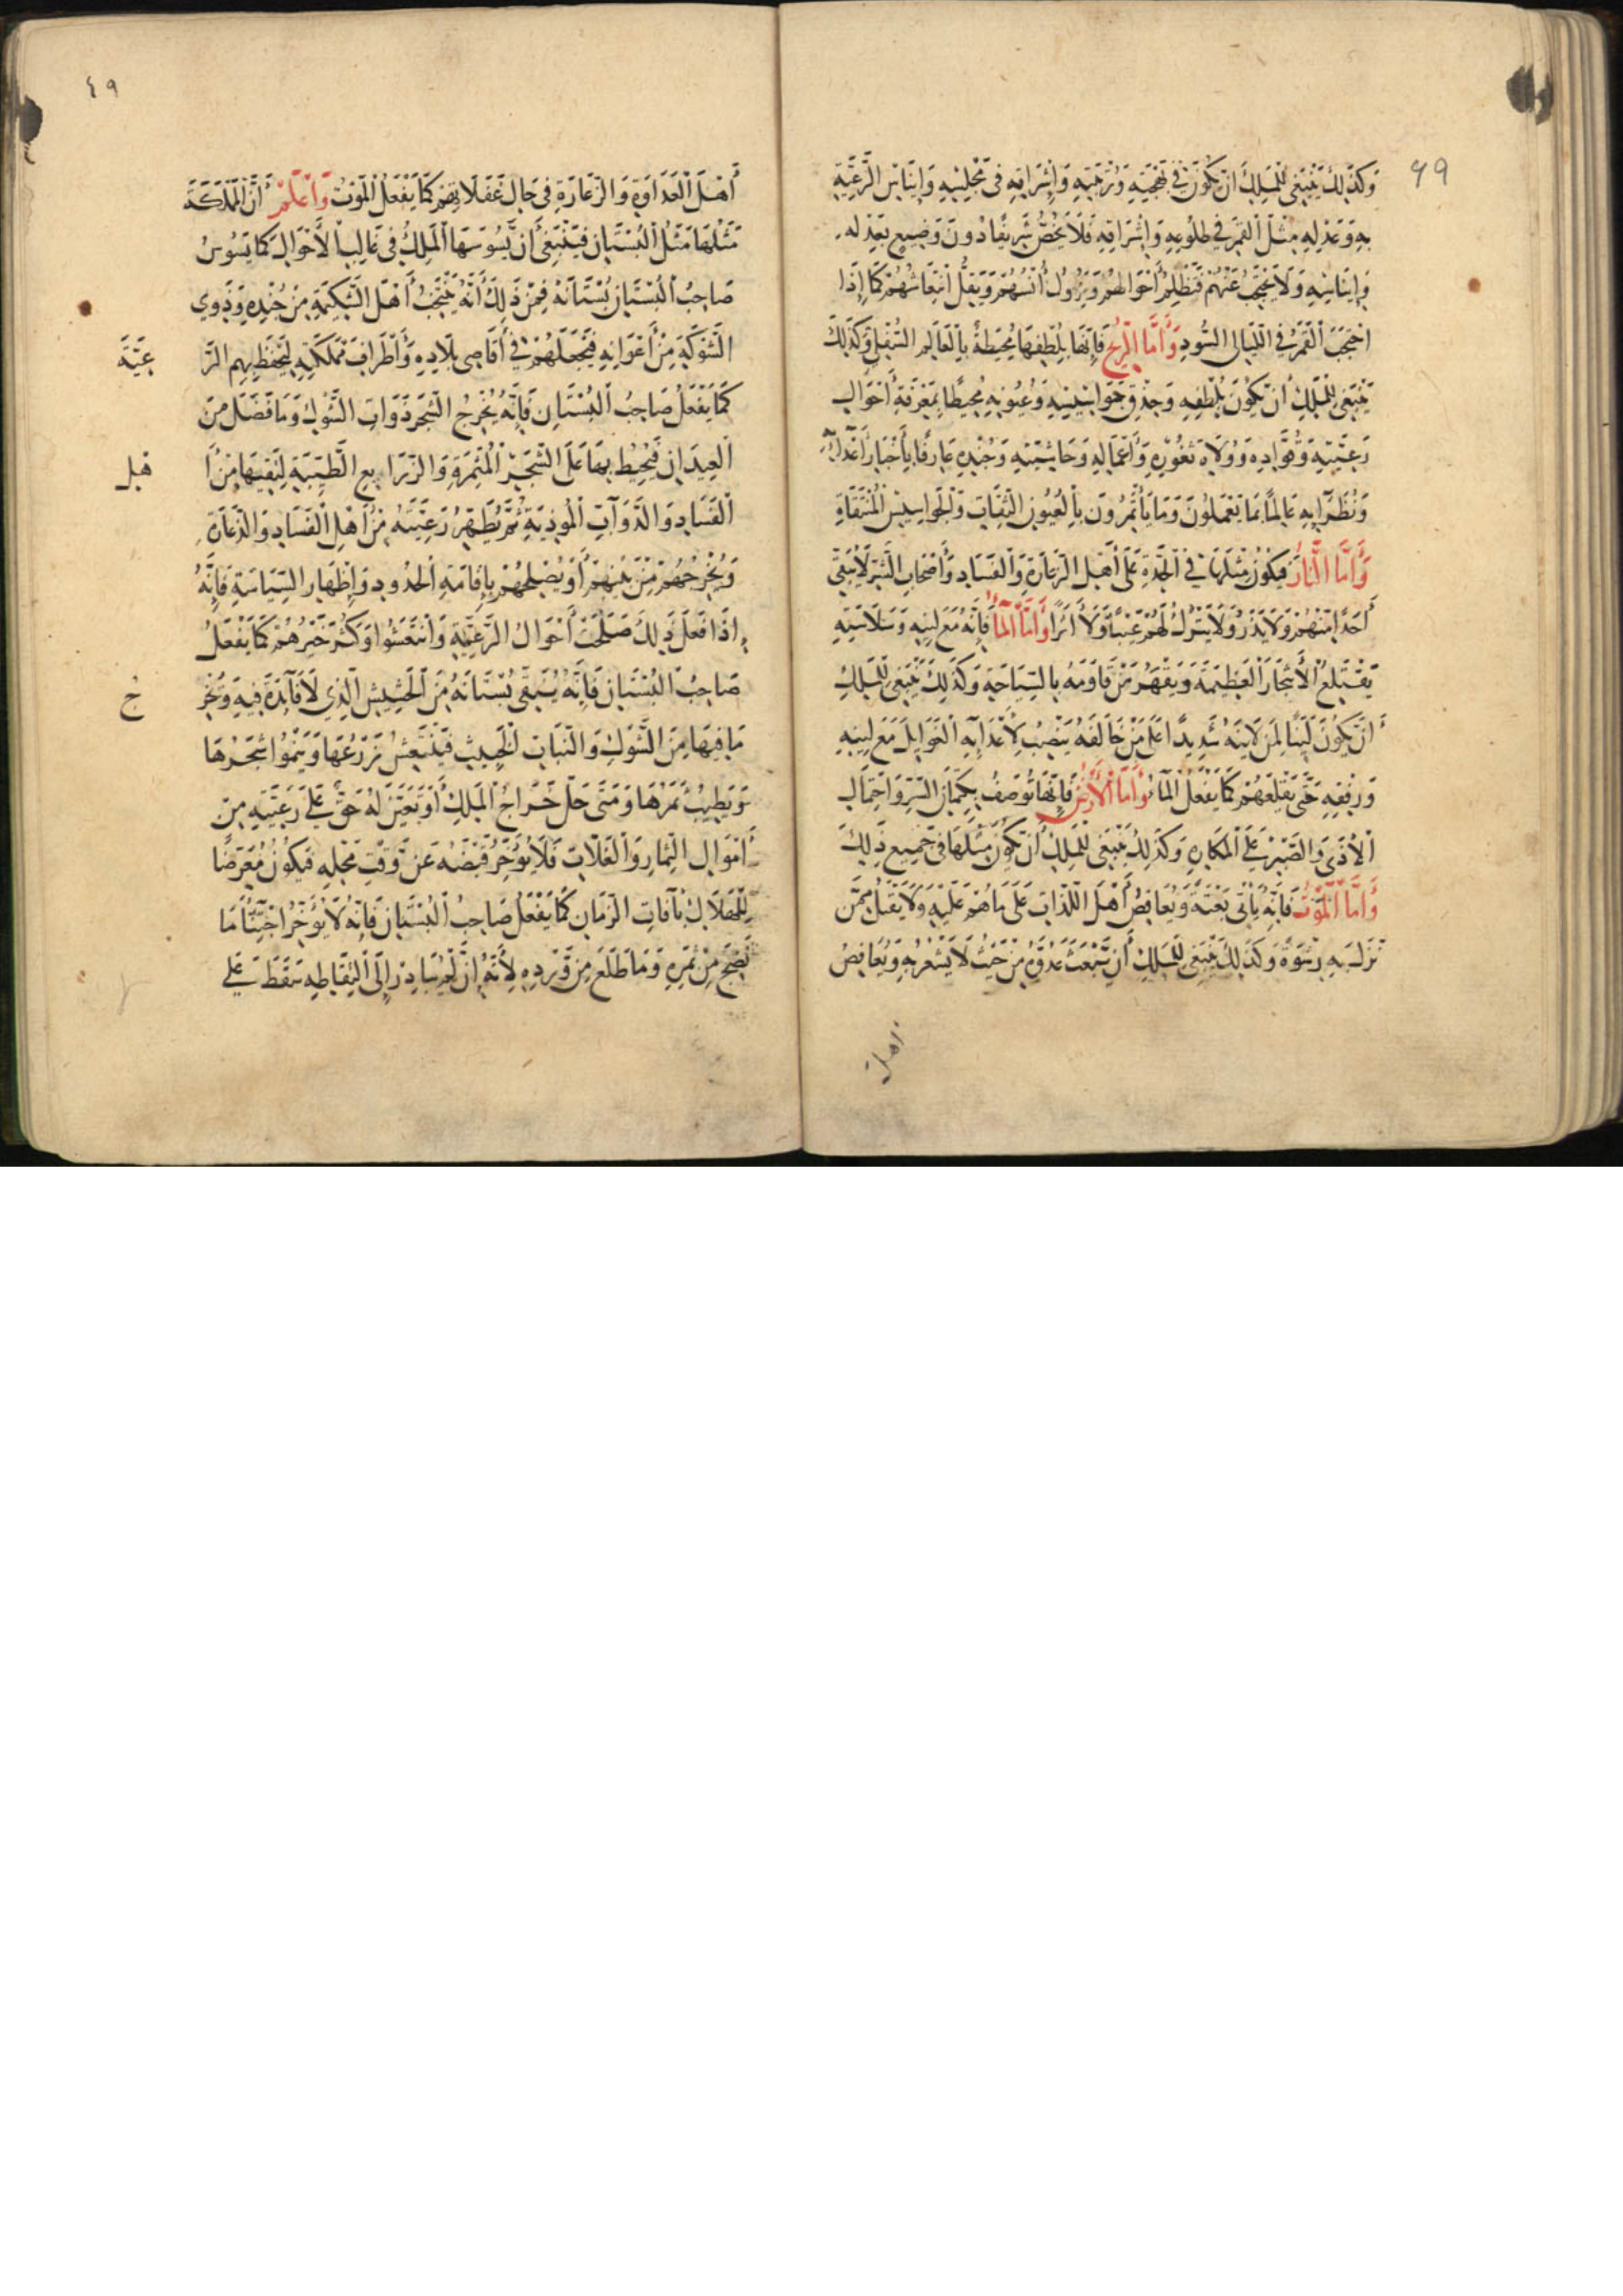 ٤٩
وَكَذَلِكَ يَنْبَغِى لِلْمَلِكِ اَنْ يَكُونَ فِي بَهْجَتِهِ وَزِينَتِهِ وَإِشْرَاقِهِ فِى مَجْلِسِهِ وَإِينَاسِ الرَّعِيَّةِ
بِهِ وَعَدْلِهِ مِثْلَ الْقَمَرِ فِي طُلُوعِهِ وَإِشْرَاقِهِ فَلَا يَخُصُّ شَرِيفًا دُونَ وَضِيعٍ بِعَدْلِهِ
وَإِينَاسِهِ وَلَا يَحْتَجِبُ عَنْهُمْ فَتُظْلِمُ أَحْوَالُهُمْ وَيَزُولُ أُنْسُهُمْ وَيَقِلُّ انْتِعَاشُهُمْ كَمَا إِذَا
احْتَجَبَ الْقَمَرُ فِى اللَّيَالِى السُّودِ وَأَمَّا الرِّيحُ فَإِنَّهَا بِلُطْفِهَا مُحِيطَةٌ بِالْعَالَمِ السُّفْلِى وَكَذَلِكَ
يَنْبَغِى لِلْمَلِكِ أَنْ يَكُونَ بِلُطْفِهِ وَحِذْقِ جَوَاسِيسِهِ وَعُيُونِهِ مُحِيطًا بِمَعْرِفَةِ أَحْوَالِ
رَعِيَّتِهِ وَقُوَّادِهِ وَوُلَاةِ ثُغُورِهِ وَأَعْمَالِهِ وَحَاشِيَتِهِ وَجُنْدِهِ عَارِفًا بِأَخْبَارِ أَعْدَائِهِ
وَنُظَرَائِهِ عَالِمًا بِمَا يَعْمَلُونَ وَمَا يَأْتَمِرُونَ بِالْعُيُونِ الثِّقَاتِ وَالْجَوَاسِيسِ الْمُنْتَقَاةِ
وَأَمَّا النَّارُ فَيَكُونُ مِثْلَهَا فِي الْحِدَّةِ عَلَى أَهْلِ الزَّعَارَةِ وَالْفَسَادِ وَأَصْحَابِ الشَّرِّ لَا يُبْقِى
أَحَدًا مِنْهُمْ وَلَا يَذَرُ وَلَا يَتْرُكُ لَهُمْ عَيْنًا وَلَا أَثَرًا وَأَمَّا الْمَاءُ فَإِنَّهُ مَعَ لِينِهِ وَسَلَاسَتِهِ
يَقْتَلِعُ الْأَشْجَارَ الْعَظِيمَةَ وَيَقْهَرُ مَنْ قَاوَمَهُ بِالسِّبَاحَةِ وَكَذَلِكَ يَنْبَغِى لِلْمَلِكِ
أَنْ يَكُونَ لَيِّنًا لِمَنْ لَايَنَهُ شَدِيدًا عَلَى مَنْ خَالَفَهُ يَنْصِبُ لِأَعْدَائِهِ الْغَوَايِلَ مَعَ لِينِهِ
وَرِفْقِهِ حَتَّى يَقْلَعَهُمْ كَمَا يَفْعَلُ الْمَاءُ وَأَمَّا الْأَرْضُ فَإِنَّهَا تُوصَفُ بِكِتْمَانِ السِّرِّ وَاحْتِمَالِ
الْأَذَى وَالصَّبْرِ عَلَى الْمَكَارِهِ وَكَذَلِكَ يَنْبَغِى لِلْمَلِكِ أَنْ يَكُونَ مِثْلَهَا فِى جَمِيعِ ذَلِكَ
وَأَمَّا الْمَوْتُ فَإِنَّهُ يَأْتِى بَغْتَةً وَيُعَافِصُ أَهْلَ اللَّذَاتِ عَلَى مَا هُمْ عَلَيْهِ وَلَا يَقْبَلُ مِمَّنْ
نَزَلَ بِهِ رِشْوَةً وَكَذَلِكَ يَنْبَغِى لِلْمَلِكِ أَنْ يَبْعَثَ عَدُوَّهُ مِنْ حَيْثُ لَا يَشْعُرُ بِهِ وَيُعَافِصُ
اهل
٤٩
أَهْلَ الْعَدَاوَةِ وَالزَّعَارَةِ فِى حَالِ غَفَلَاتِهِمْ كَمَا يَفْعَلُ الْمَوْتُ وَاعْلَمْ أَنَّ الْمَمْلَكَةَ
مَثَلُهَا مَثَلُ الْبُسْتَانِ فَيَنْبَغِى أَنْ يَسُوسَهَا الْمَلِكُ فِى غَالِبِ الْأَحْوَالِ كَمَا يَسُوسُ
صَاحِبُ الْبُسْتَانِ بُسْتَانَهُ فَمِنْ ذَلِكَ أَنَّهُ يَنْتَخِبُ أَهْلَ الشَّكِيمَةِ مِنْ جُنْدِهِ وَذَوِي
الشَّوْكَةِ مِنْ أَعْوَانِهِ فَيَجْعَلُهُمْ فِى أَقَاصِى بِلَادِهِ وَأَطْرَافِ مَمْلَكَتِهِ لِيَحْفَظَ بِهِمِ الرَّ عِيَّةَ
كَمَا يَفْعَلُ صَاحِبُ الْبُسْتَانِ فَإِنَّهُ يُخْرِجُ الشَّجَرَ ذَوَاتِ الشَّوْكِ وَمَا فَضَلَ مِنَ
الْعِيدَانِ فَيُحِيطُ بِهَا عَلَى الشَّجَرِ الْمُثْمِرَةِ وَالزَّرَايِعِ الطَّيِّبَةِ لِيَقِيَهَا مِنْ أَ هْلِ
الْفَسَادِ وَالدَّوَابِّ الْمُوذِيَةِ ثُمَّ يُطَهِّرُ رَعِيَّتَهُ مِنْ أَهْلِ الْفَسَادِ وَالدَّعَارَةِ
وَيُخْرِجُهُمْ مِنْ بَيْنِهِمْ أَوْ يُصْلِحُهُمْ بِإِقَامَةِ الْحُدُودِ وَإِظْهَارِ السِّيَاسَةِ فَإِنَّهُ
إِذَا فَعَلَ ذَلِكَ صَلُحَتْ أَحْوَالُ الرَّعِيَّةِ وَانْتَعَشُوا وَكَثُرَ خَيْرُهُمْ كَمَا يَفْعَلُ
صَاحِبُ الْبُسْتَانِ فَإِنَّهُ يُنَقِّى بُسْتَانَهُ مِنَ الْحَشِيشِ الَّذِي لَا فَائِدَةَ فِيهِ وَيُخْرِ جُ
مَا فِيهَا مِنَ الشَّوْكِ وَالنَّبَاتِ الْخَبِيثِ فَيَنْتَعِشُ زَرْعُهَا وَيَنْمُوا شَجَرُهَا
وَيَطِيبُ ثَمَرُهَا وَمَتَى حَلَّ خَرَاجُ الْمَلِكِ أَوْ تَعَيَّنَ لَهُ حَقٌّ عَلَى رَعِيَّتِهِ مِنْ
أَمْوَالِ الثِّمَارِ وَالْغَلَّاتِ فَلَا يُؤَخِّرُ قَبْضَهُ عَنْ وَقْتِ مَحَلِّهِ فَيَكُونُ مُعَرَّضًا
لِلْهَلَاكِ بِآفَاتِ الزَّمَانِ كَمَا يَفْعَلُ صَاحِبُ الْبُسْتَانِ فَإِنَّهُ لَا يُؤَخِّرُ اجْتِنَاءَ مَا
نَضِجَ مِنْ ثَمَرِهِ وَمَا طَلَعَ مِنْ وَرْدِهِ لِأَنَّهُ إِنْ لَمْ يُبَادِرْ إِلَى الْتِقَاطِهِ سَقَطَ عَلَى